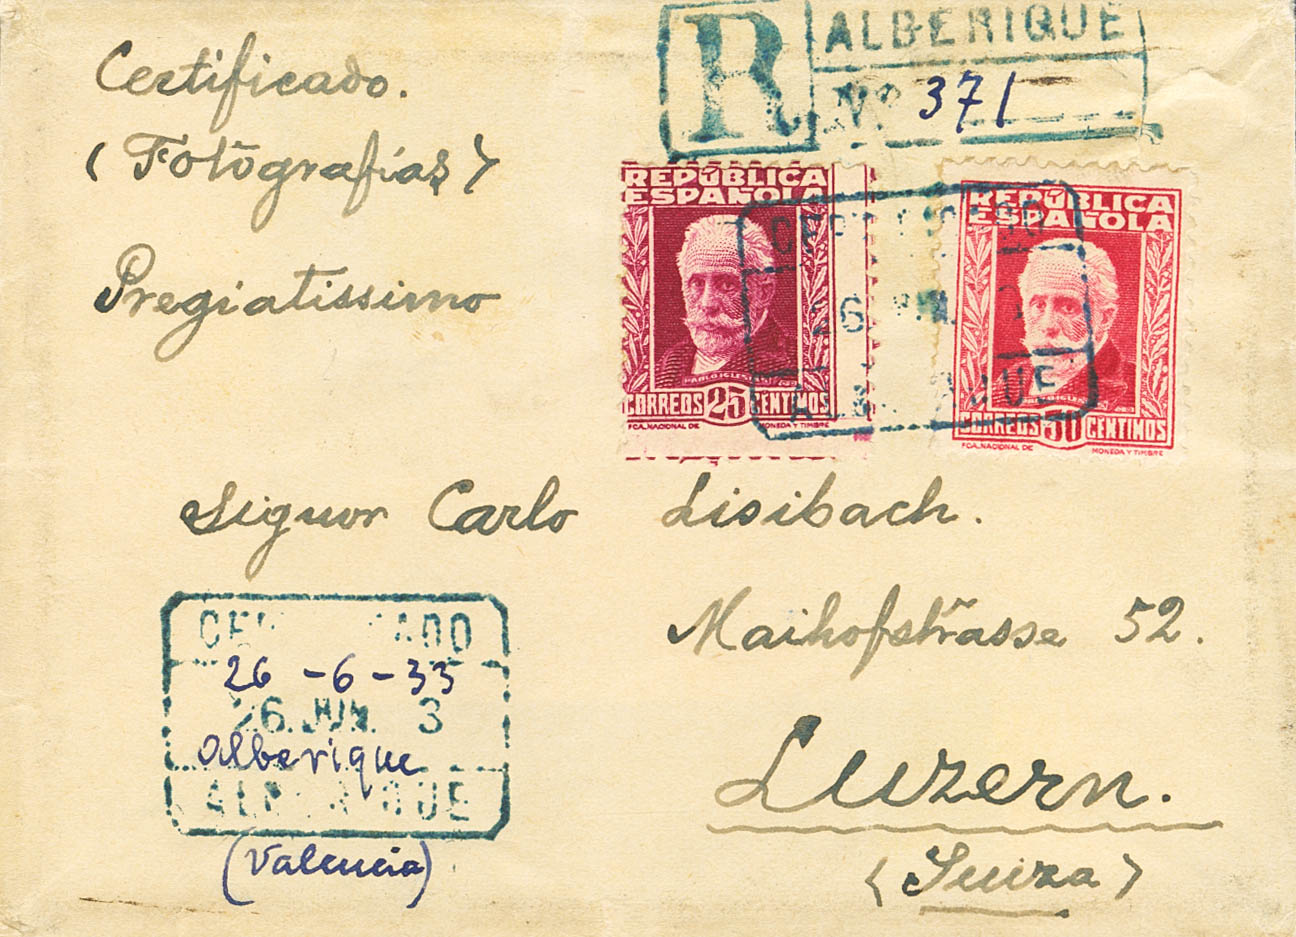 Certificado.
(Fotografías)
Pregiatissimo
R ALBERIQUE
Nº 371
REPÚBLICA
ESPAÑOLA
PABLO IGLESIAS
CORREOS 25 CENTIMOS
FCA. NACIONAL DE MONEDA Y TIMBRE
REPÚBLICA
ESPAÑOLA
CORREOS 30 CENTIMOS
FCA. NACIONAL DE MONEDA Y TIMBRE
CERTIFICADO
26 JUN. 3
ALBERIQUE
Signor Carlo Lisibach.
Maihofstrasse 52.
Luzern.
(Suiza)
CERTIFICADO
26-6-33
26. JUN. 3
Alberique
ALBERIQUE
(Valencia)